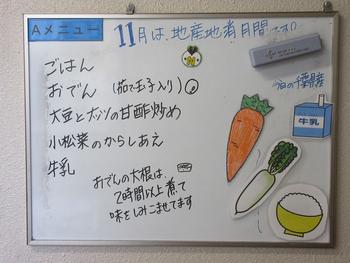 Aメニュー
11月は、地産地消月間です!!
ごはん
おでん (茹で玉子入り)
大豆とナッツの甘酢炒め
小松菜のからしあえ
牛乳
おでんの大根は、
2時間以上煮て
味をしみこませてます
千葉県産
牛乳